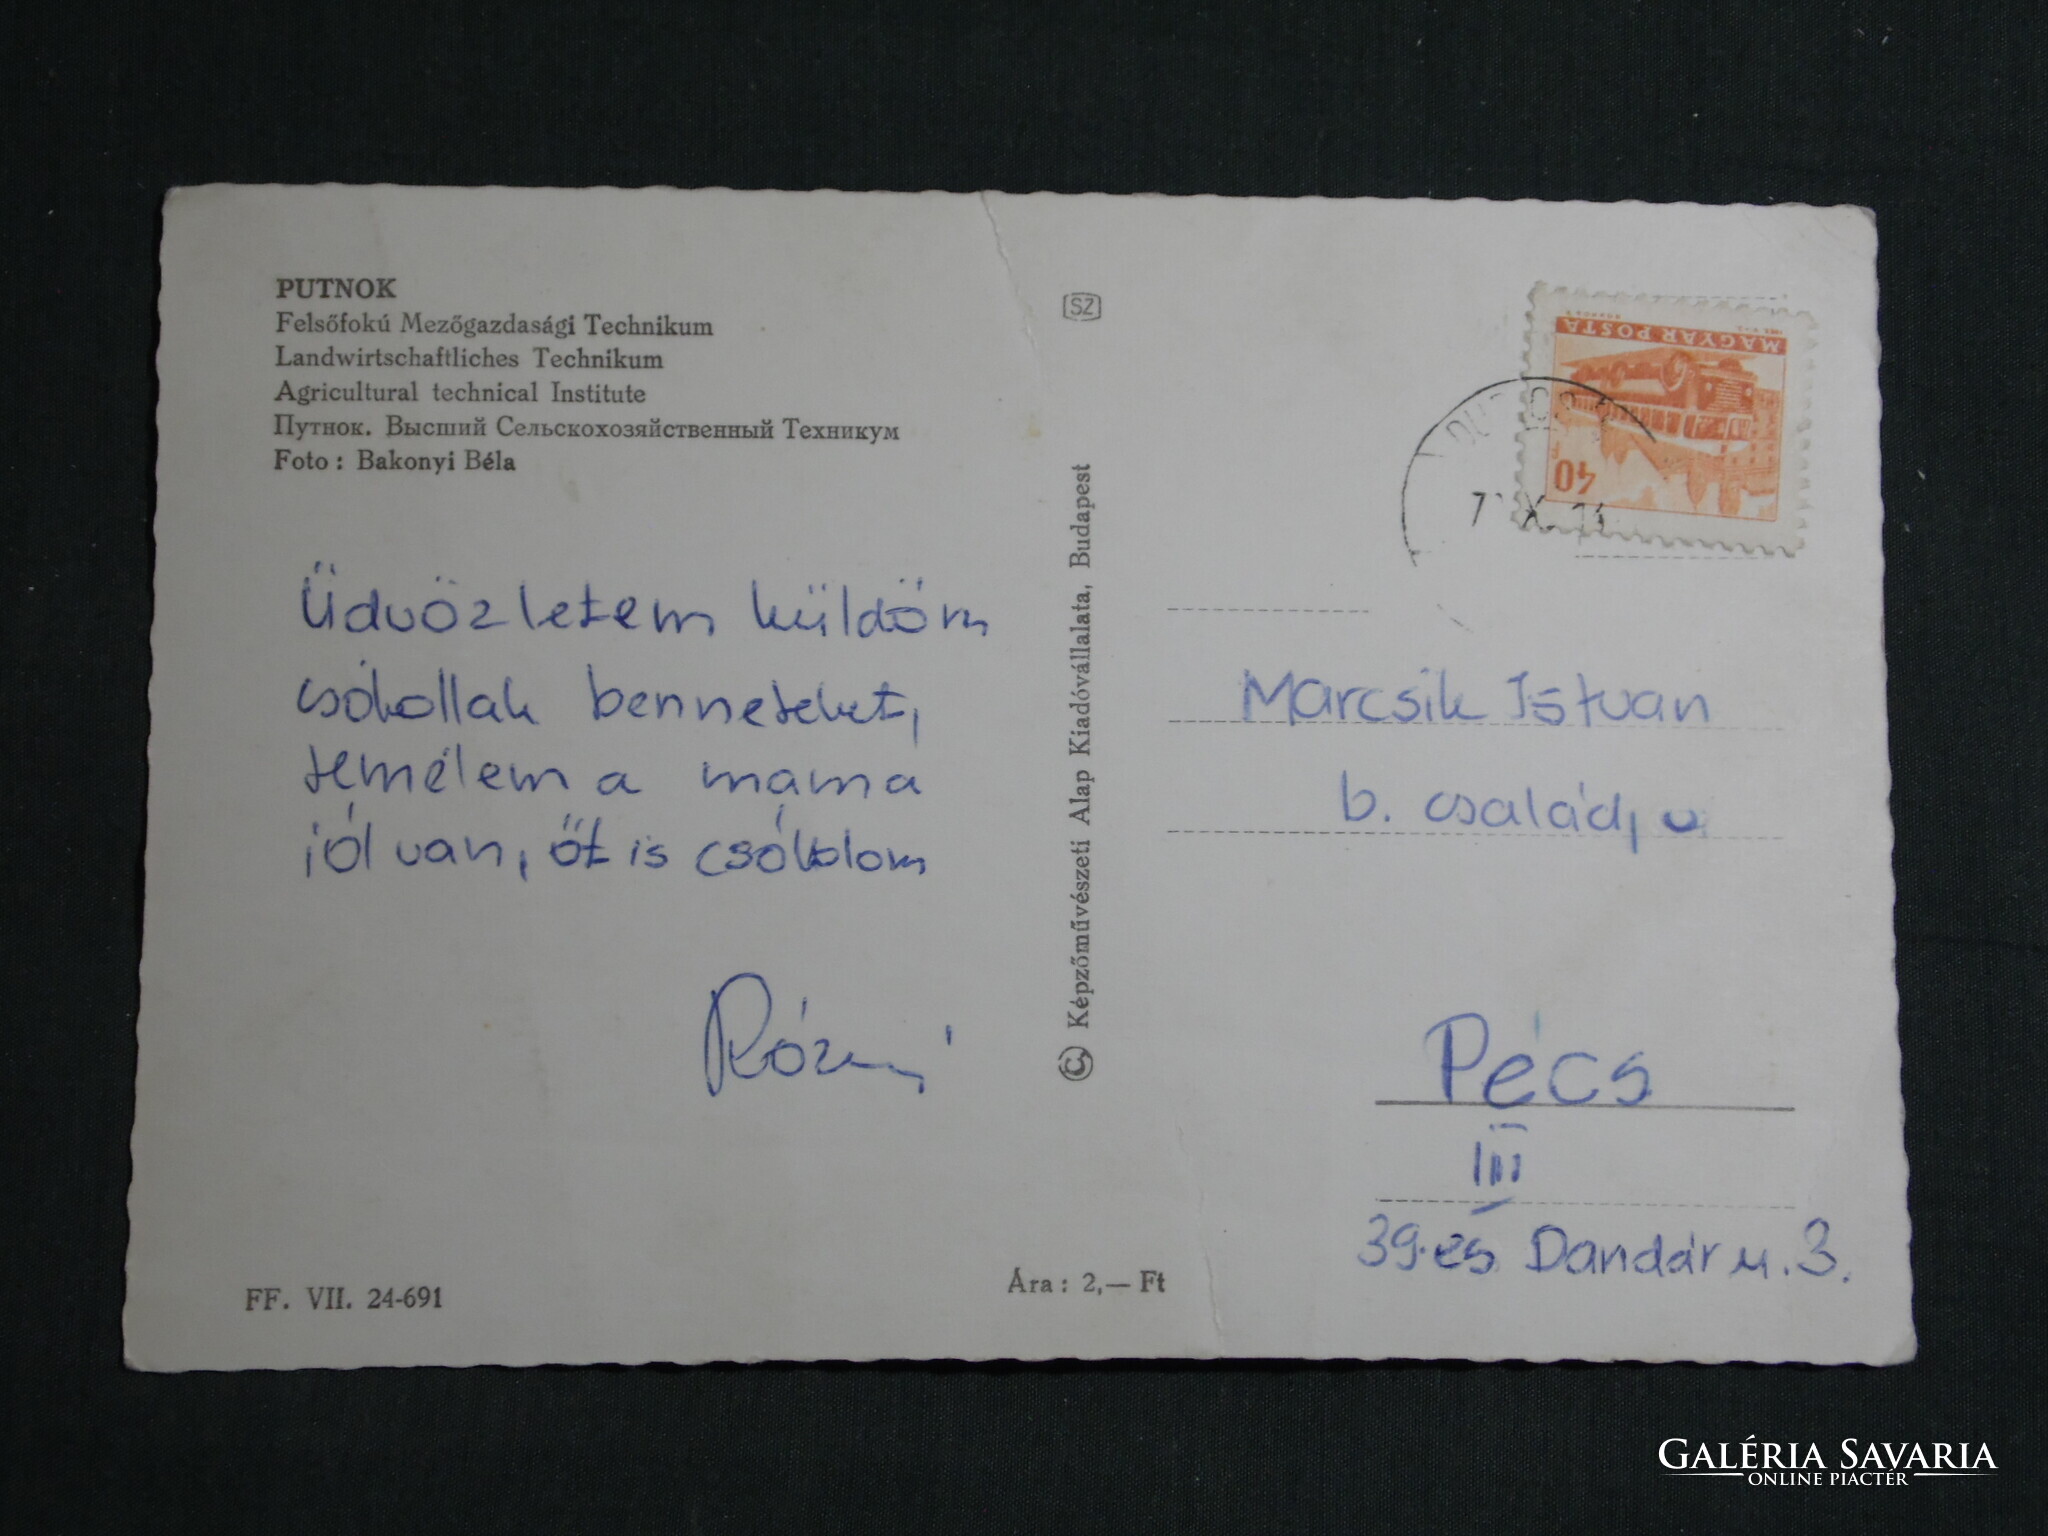 PUTNOK
Felsőfokú Mezőgazdasági Technikum
Landwirtschaftliches Technikum
Agricultural technical Institute
Путнок. Высший Сельскохозяйственный Техникум
Foto : Bakonyi Béla
Üdvözletem küldöm
csókollak benneteket,
remélem a mama
jól van, őt is csókolom
FF. VII. 24-691
Ára : 2,— Ft
SZ
© Képzőművészeti Alap Kiadóvállalata, Budapest
MAGYAR POSTA
40
Marcsik István
b. család,
Pécs
III
39-es Dandár u. 3.
GALÉRIA SAVARIA
ONLINE PIACTÉR